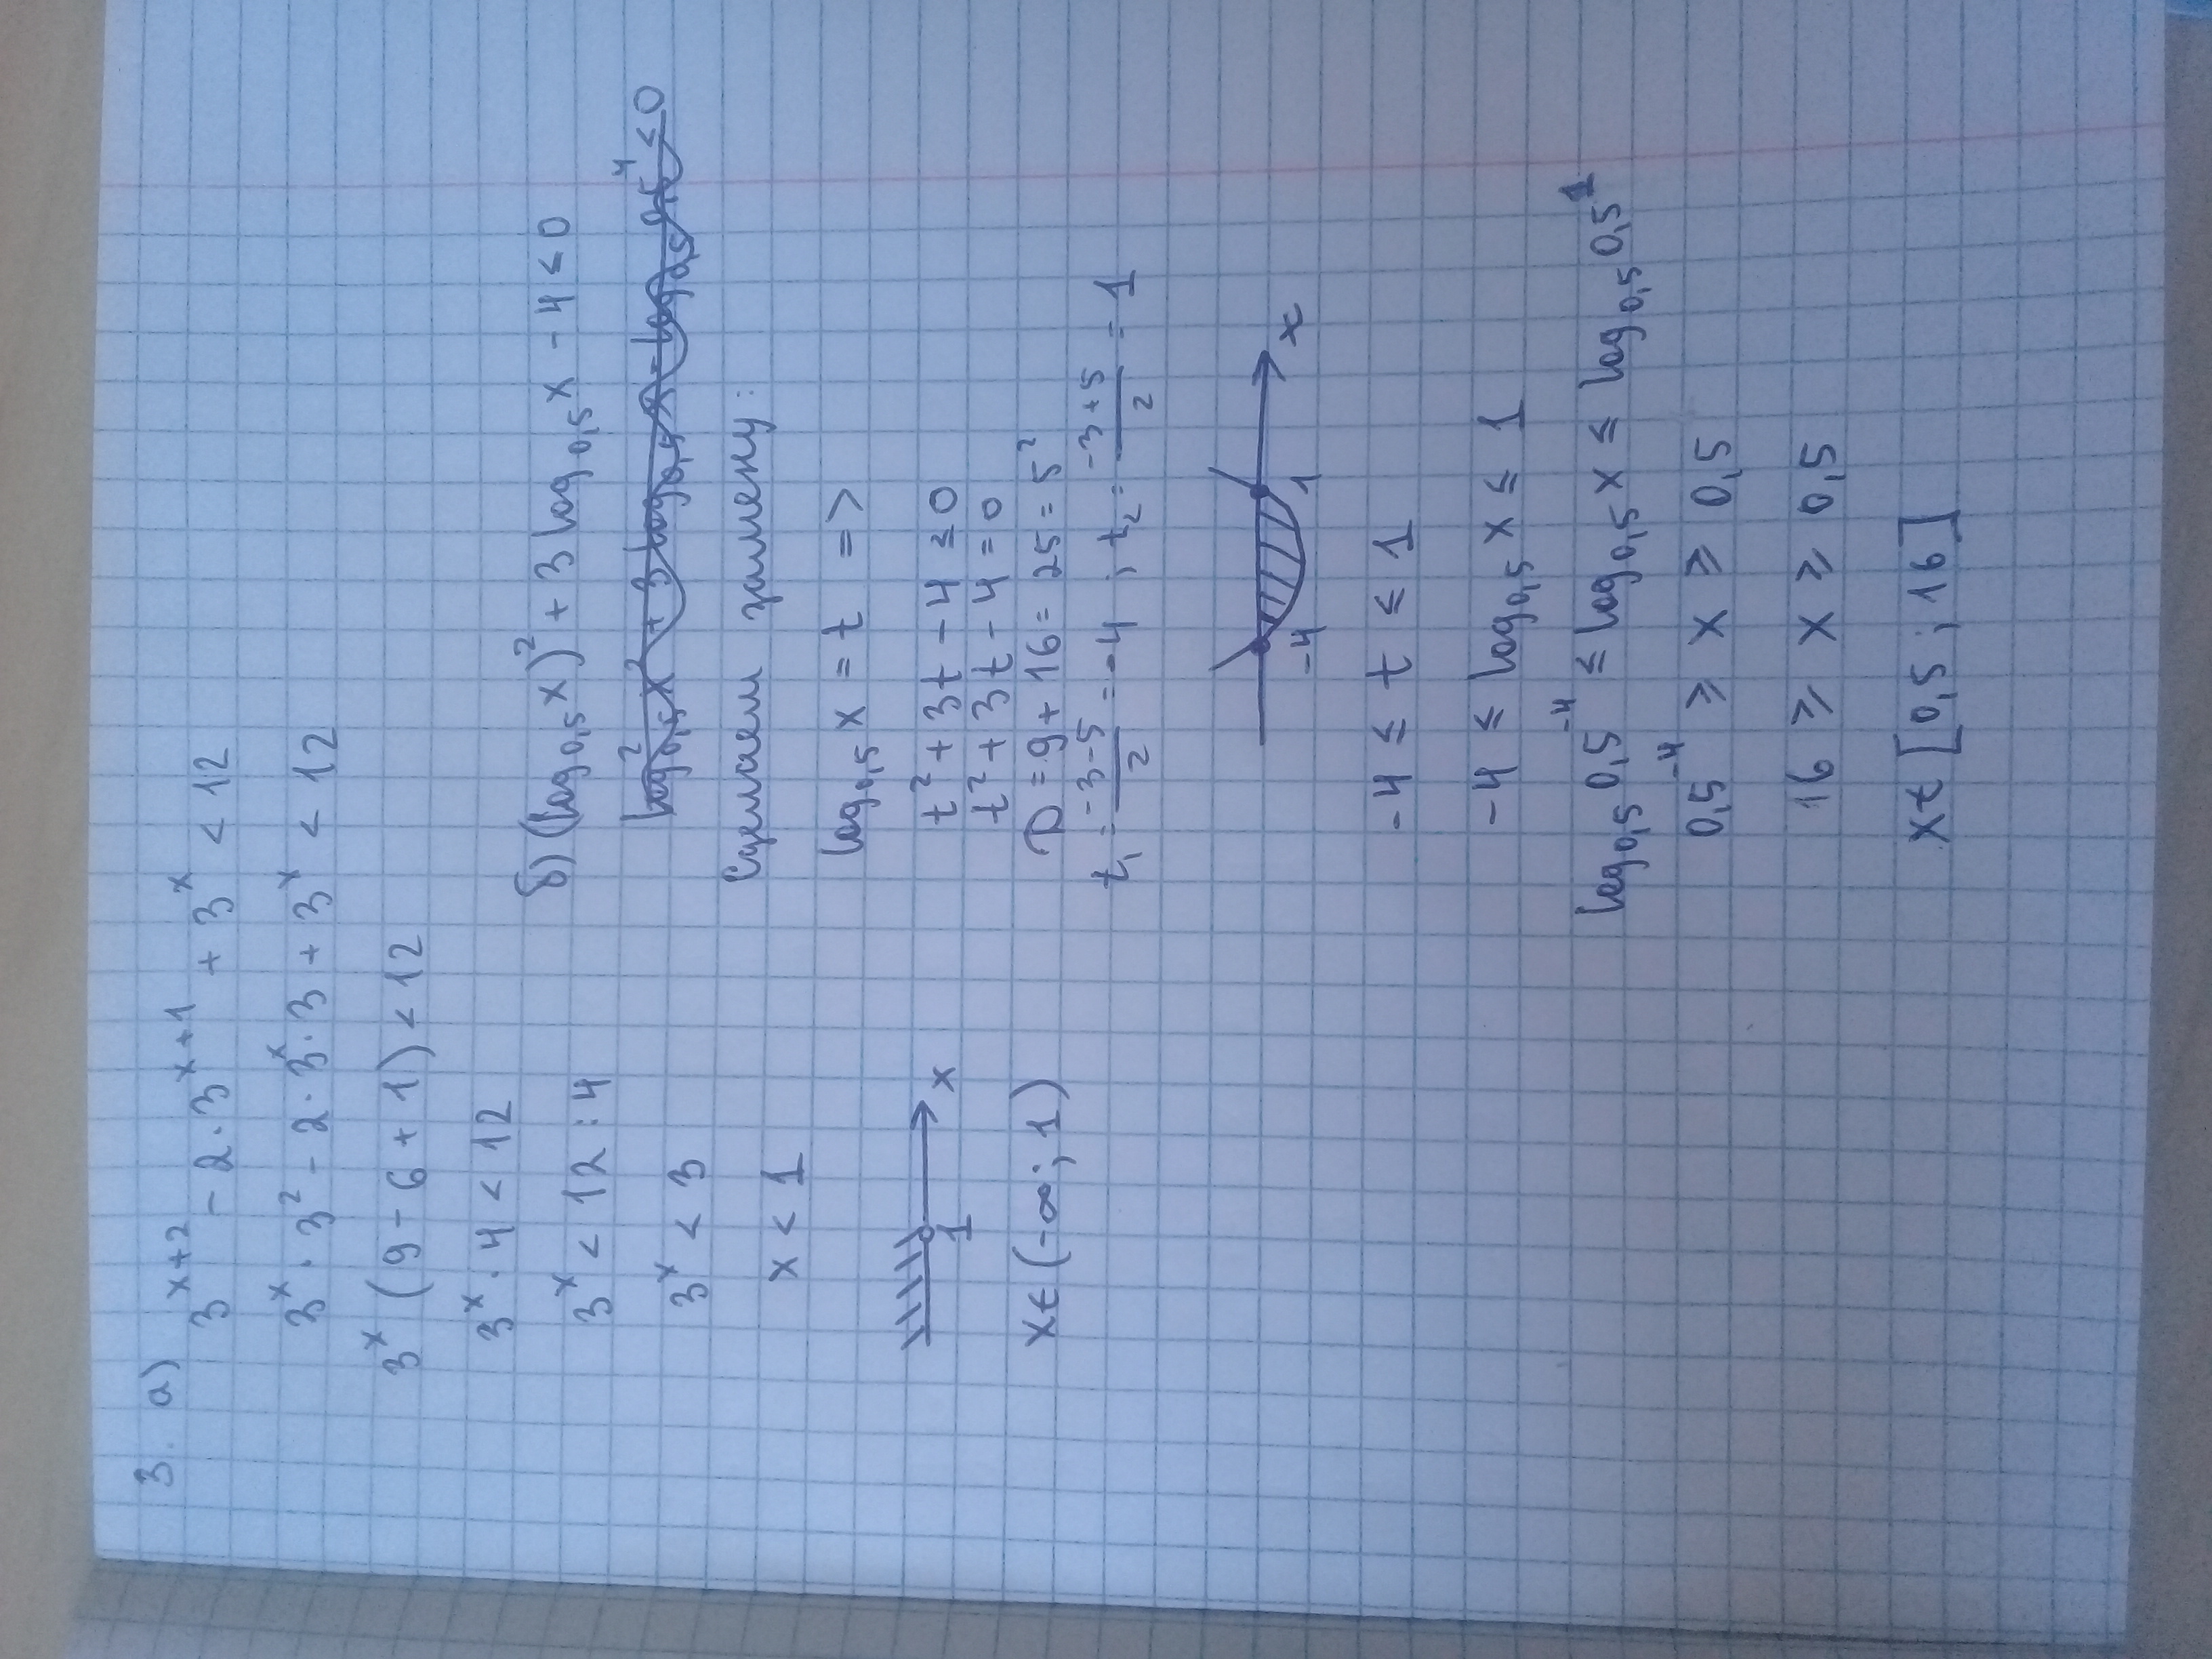 3. а)
3^{x+2} - 2·3^{x+1} + 3^x < 12
3^x · 3^2 - 2·3^x·3 + 3^x < 12
3^x (9 - 6 + 1) < 12
3^x · 4 < 12
3^x < 12 : 4
3^x < 3
x < 1
1 x
x ∈ (-∞; 1)
б) (log_{0,5} x)^2 + 3 log_{0,5} x - 4 ≤ 0
Сделаем замену:
log_{0,5} x = t =>
t^2 + 3t - 4 ≤ 0
t^2 + 3t - 4 = 0
D = 9 + 16 = 25 = 5^2
t_1 = \frac{-3-5}{2} = -4 ; t_2 = \frac{-3+5}{2} = 1
-4 1 x
-4 ≤ t ≤ 1
-4 ≤ log_{0,5} x ≤ 1
log_{0,5} 0,5^{-4} ≤ log_{0,5} x ≤ log_{0,5} 0,5^1
0,5^{-4} ≥ x ≥ 0,5
16 ≥ x ≥ 0,5
x ∈ [0,5; 16]